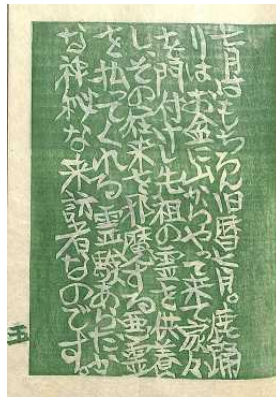 七月はもちろん旧暦七月。鹿踊
りはお盆に山からやって来て家々
を門付けし先祖の霊を供養
しその在来を邪魔する悪霊
を払ってくれる霊験あらたか
な神秘な来訪者なのです。
五